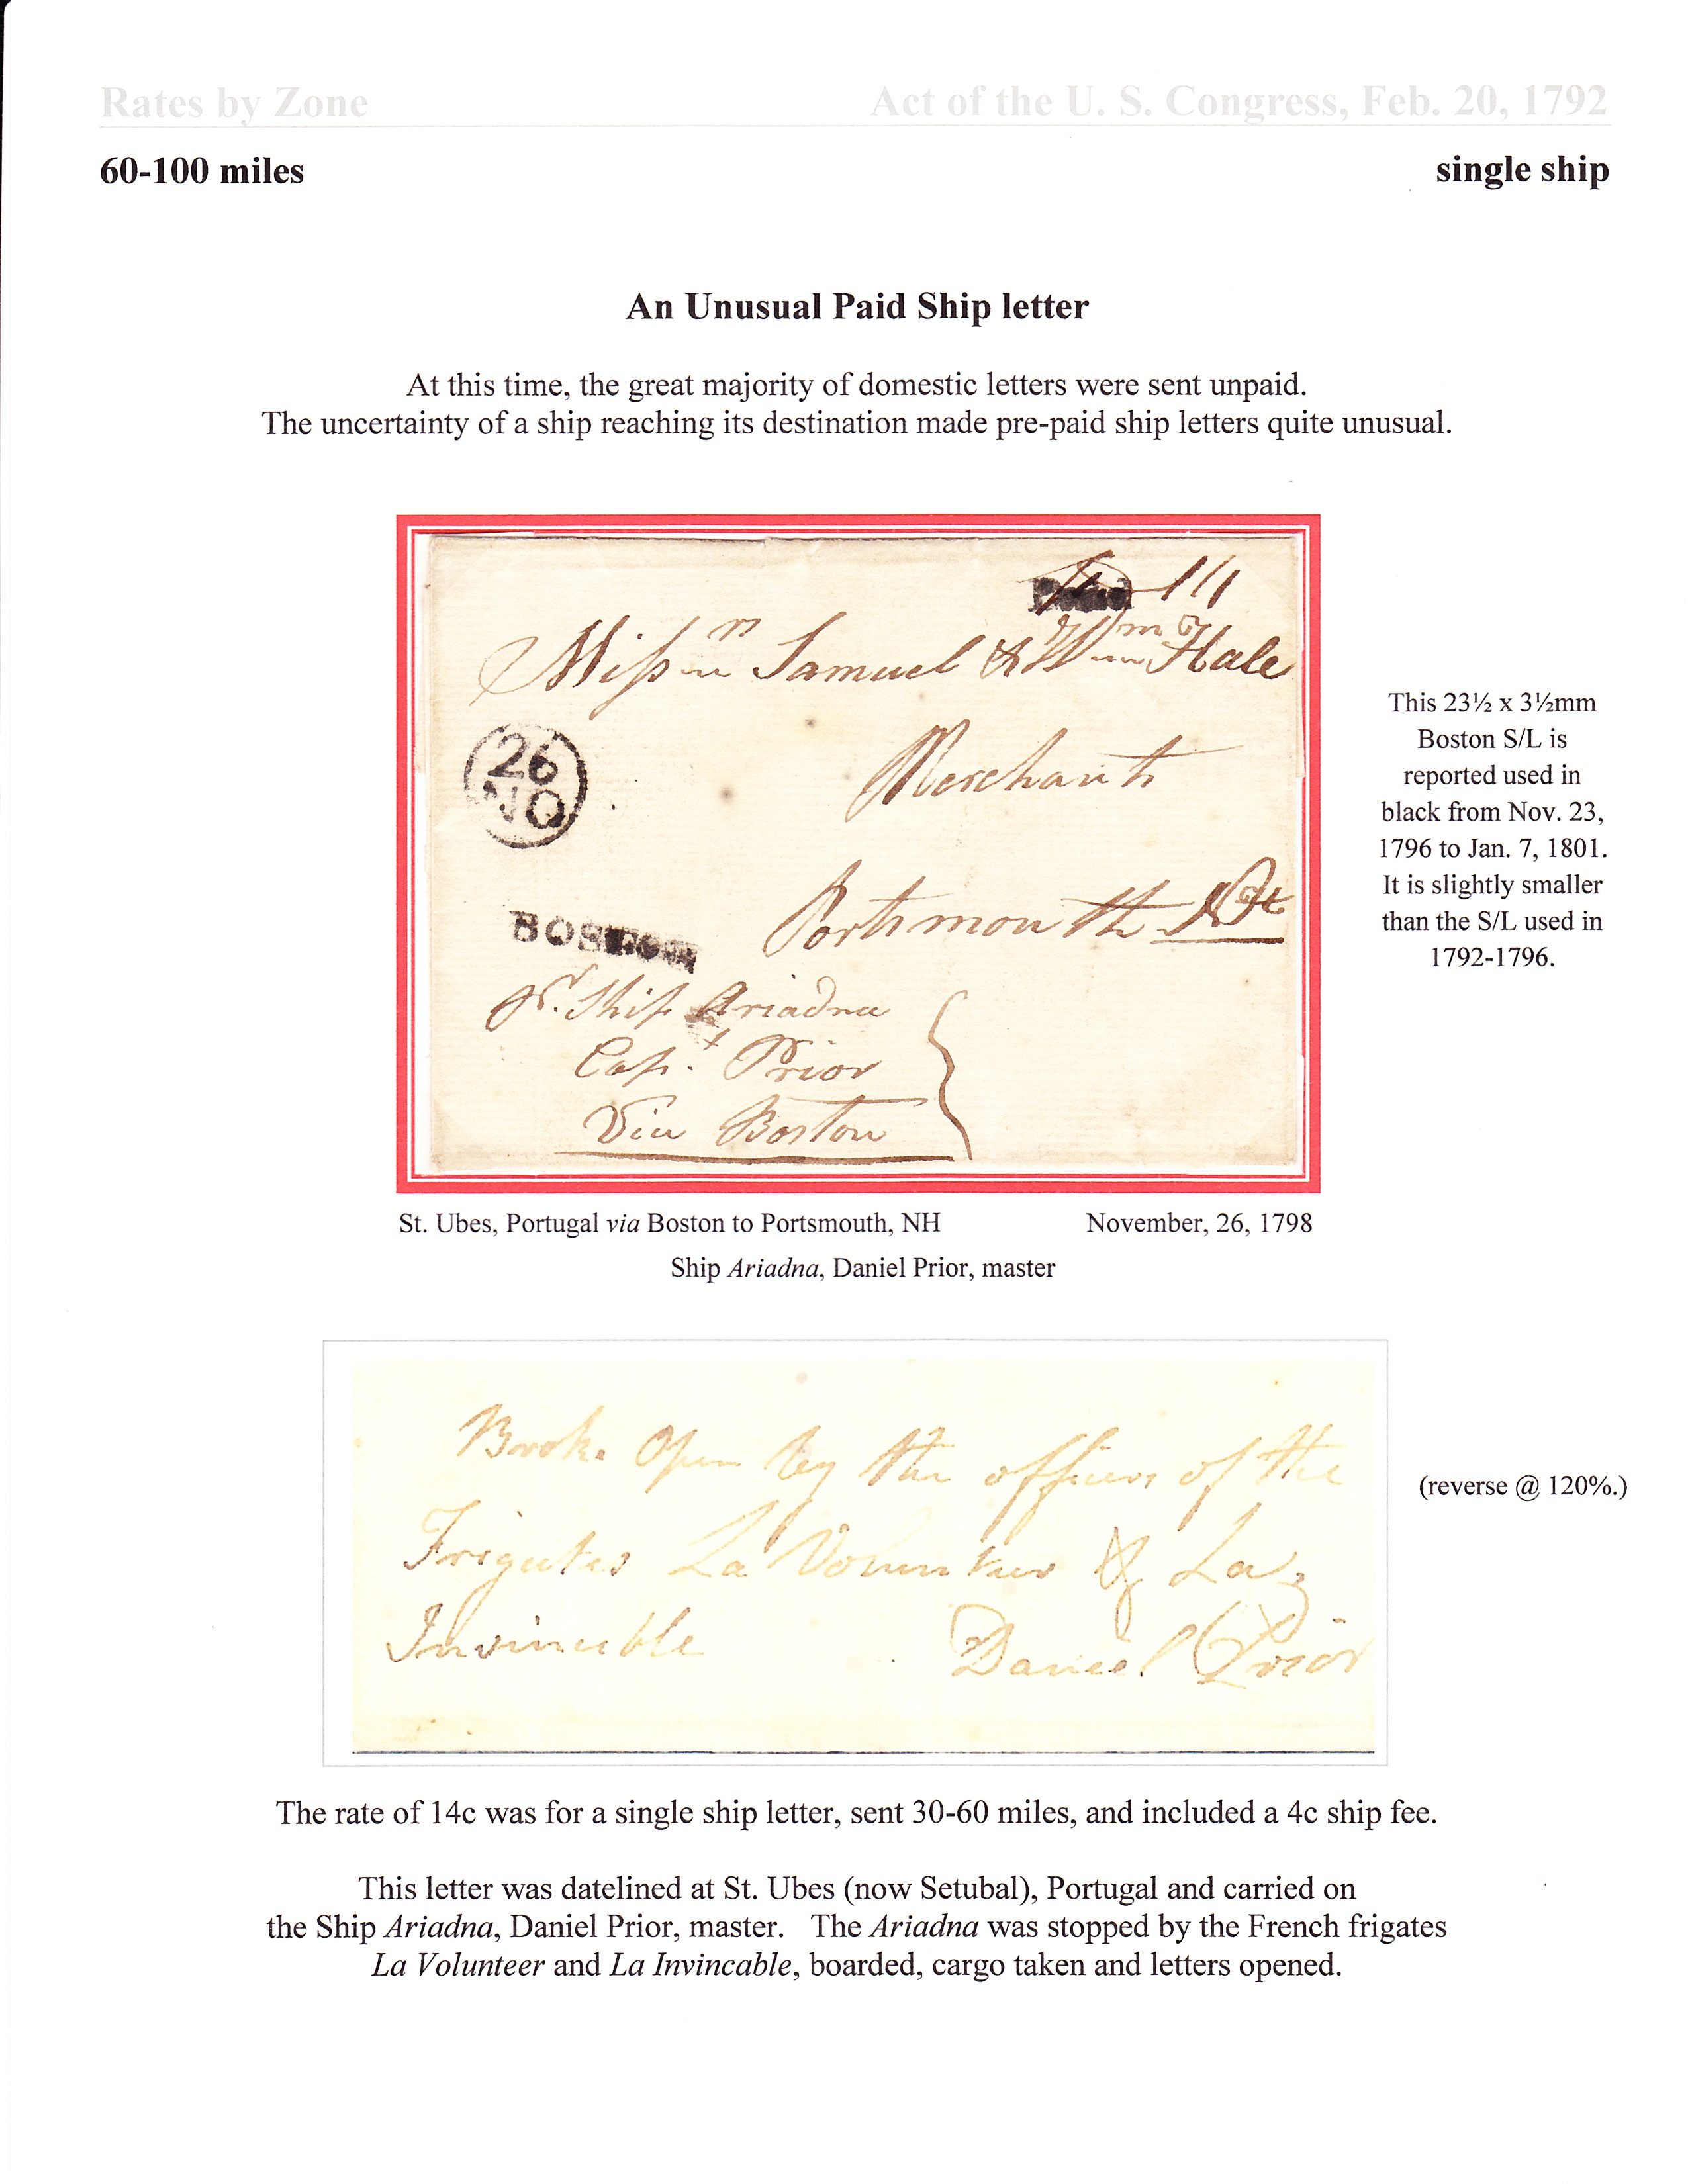 Rates by Zone
Act of the U. S. Congress, Feb. 20, 1792
60-100 miles
single ship
An Unusual Paid Ship letter
At this time, the great majority of domestic letters were sent unpaid.
The uncertainty of a ship reaching its destination made pre-paid ship letters quite unusual.
Paid 14
Messrs Samuel & Wm Hale
Merchants
Portsmouth NH
26
NO
BOSTON
Pr. Ship Ariadna
Capt. Prior
Via Boston
This 23½ x 3½mm
Boston S/L is
reported used in
black from Nov. 23,
1796 to Jan. 7, 1801.
It is slightly smaller
than the S/L used in
1792-1796.
St. Ubes, Portugal via Boston to Portsmouth, NH
November, 26, 1798
Ship Ariadna, Daniel Prior, master
Broke Open by the officers of the
Frigates La Volunteer & La
Invincible Daniel Prior
(reverse @ 120%.)
The rate of 14c was for a single ship letter, sent 30-60 miles, and included a 4c ship fee.
This letter was datelined at St. Ubes (now Setubal), Portugal and carried on
the Ship Ariadna, Daniel Prior, master. The Ariadna was stopped by the French frigates
La Volunteer and La Invincable, boarded, cargo taken and letters opened.